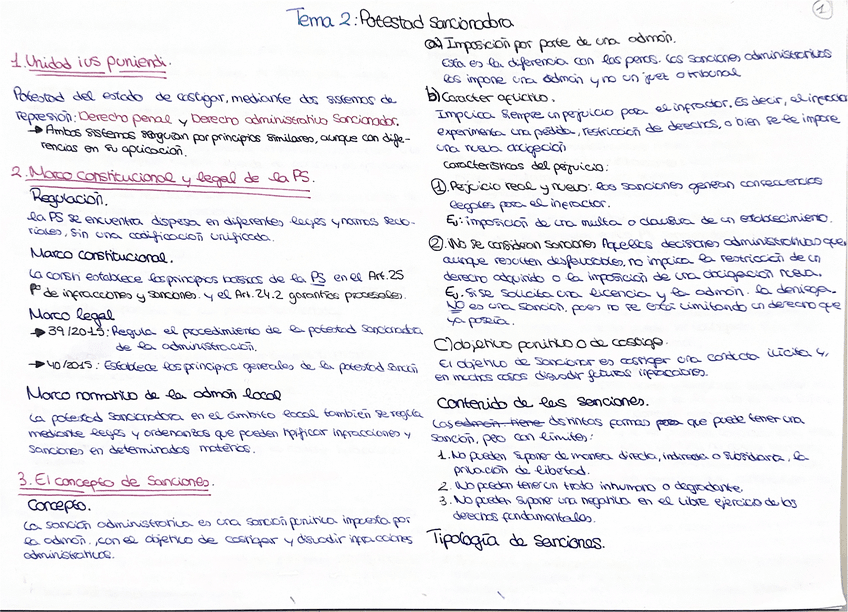 1
Tema 2: Potestad sancionadora
1. Unidad ius puniendi.
Potestad del estado de castigar, mediante dos sistemas de
represión: Derecho penal y Derecho administrativo Sancionador.
→ Ambos sistemas se guían por principios similares, aunque con dife-
rencias en su aplicación.
2. Marco constitucional y legal de la PS.
Regulación.
La PS se encuentra dispersa en diferentes leyes y normas secto-
riales, sin una codificación unificada.
Marco constitucional.
La consti establece los principios básicos de la PS en el Art. 25
Pº de infracciones y sanciones. y el Art. 24.2 garantías procesales.
Marco legal
→ 39/2015: Regula el procedimiento de la potestad sancionadora
de la administración.
→ 40/2015: Establece los principios generales de la potestad sanción
Marco normativo de la admón local
La potestad sancionadora en el ámbito local también se regula
mediante leyes y ordenanzas que pueden tipificar infracciones y
sanciones en determinadas materias.
3. El concepto de Sanciones.
Concepto.
La sanción administrativa es una sanción punitiva impuesta por
la admón., con el objetivo de castigar y disuadir infracciones
administrativas.
a) Imposición por parte de una admón.
Esta es la diferencia con las penas. Las sanciones administrativas
las impone una admón y no un juez o tribunal
b) Carácter aflictivo.
Implica siempre un perjuicio para el infractor. Es decir, el infractor
experimenta una pérdida, restricción de derechos, o bien se le impone
una nueva obligación
Características del perjuicio:
1. Perjuicio real y nuevo: las sanciones generan consecuencias
legales para el infractor.
Ej: imposición de una multa o clausura de un establecimiento.
2. No se consideran sanciones Aquellas decisiones administrativas que,
aunque resulten desfavorables, no implica la restricción de un
derecho adquirido o la imposición de una obligación nueva.
Ej. Si se solicita una licencia y la admón. la deniega.
NO es una sanción, pues no se está limitando un derecho que
ya poseía.
C) objetivo punitivo o de castigo.
El objetivo de sancionar es castigar una conducta ilícita y,
en muchos casos disuadir futuras infracciones.
Contenido de las sanciones.
Las admón tiene distintas formas para que puede tener una
sanción, pero con límites:
1. No pueden suponer de manera directa, indirecta o subsidiaria, la
privación de libertad.
2. No pueden tener un trato inhumano o degradante.
3. No pueden suponer una negativa en el libre ejercicio de los
derechos fundamentales.
Tipología de sanciones.